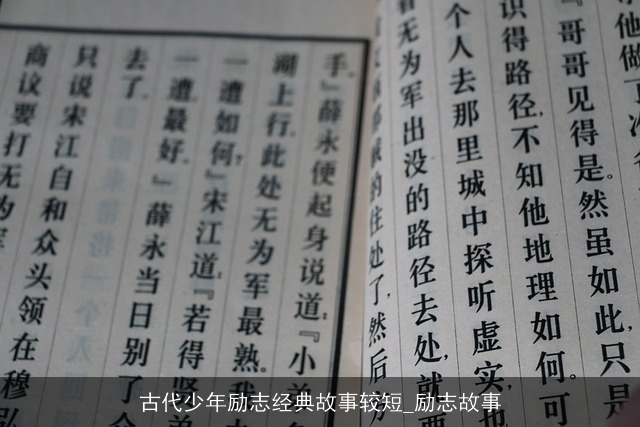 他做
『哥哥见得是。然虽如此，只是
识得路径，不知他地理如何。可
个人去那里城中探听虚实，也
看无为军出没的路径去处，就要
贼的住处了，然后方
手。』薛永便起身说道：『小弟
湖上行，此处无为军最熟。我去
一遭如何？』宋江道：『若得贤弟
一遭，最好。』薛永当日别了众
去了。
只说宋江自和众头领在穆弘
商议要打无为军
古代少年励志经典故事较短_励志故事